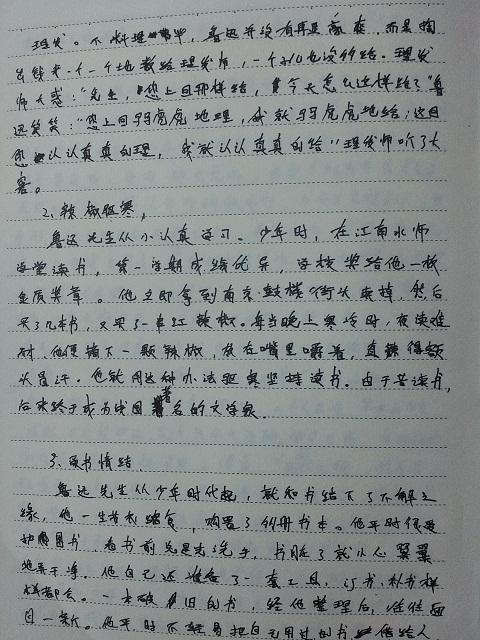 理发。不料理完毕，鲁迅并没有再豪爽，而是掏
出钱来一个一个地数给理发师，一个子儿也没多给。理发
师大惑：“先生，您上回那样给，今天怎么这样给？”鲁
迅笑笑：“您上回马马虎虎地理，我就马马虎虎地给；这回
您认认真真的理，我就认认真真的给”理发师听了大
窘。
2、辣椒驱寒，
鲁迅先生从小认真学习。少年时，在江南水师
学堂读书，第一学期成绩优异，学校奖给他一枚
金质奖章。他立即拿到南京鼓楼街头卖掉，然后
买了几本书，又买了一串红辣椒。每当晚上寒冷时，夜读难
耐，他便摘下一颗辣椒，放在嘴里嚼着，直辣得额
头冒汗。他就用这种办法驱寒坚持读书。由于苦读书，
后来终于成为我国著名的文学家。
3、买书情结
鲁迅先生从少年时代起，就和书结下了不解之
缘，他一生节衣缩食，购置了册书本。他平时很爱
护图书，看书前总是先洗手，书脏了就小心翼翼
地弄干净。他自己还准备了一套工具，订书、补书样
样都会。一本破旧的书，经他整理后，往往面
目一新。他平时不轻易把自己用过的书借给人